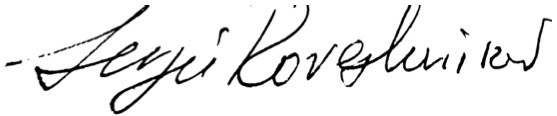 Sergei Koveshnikov